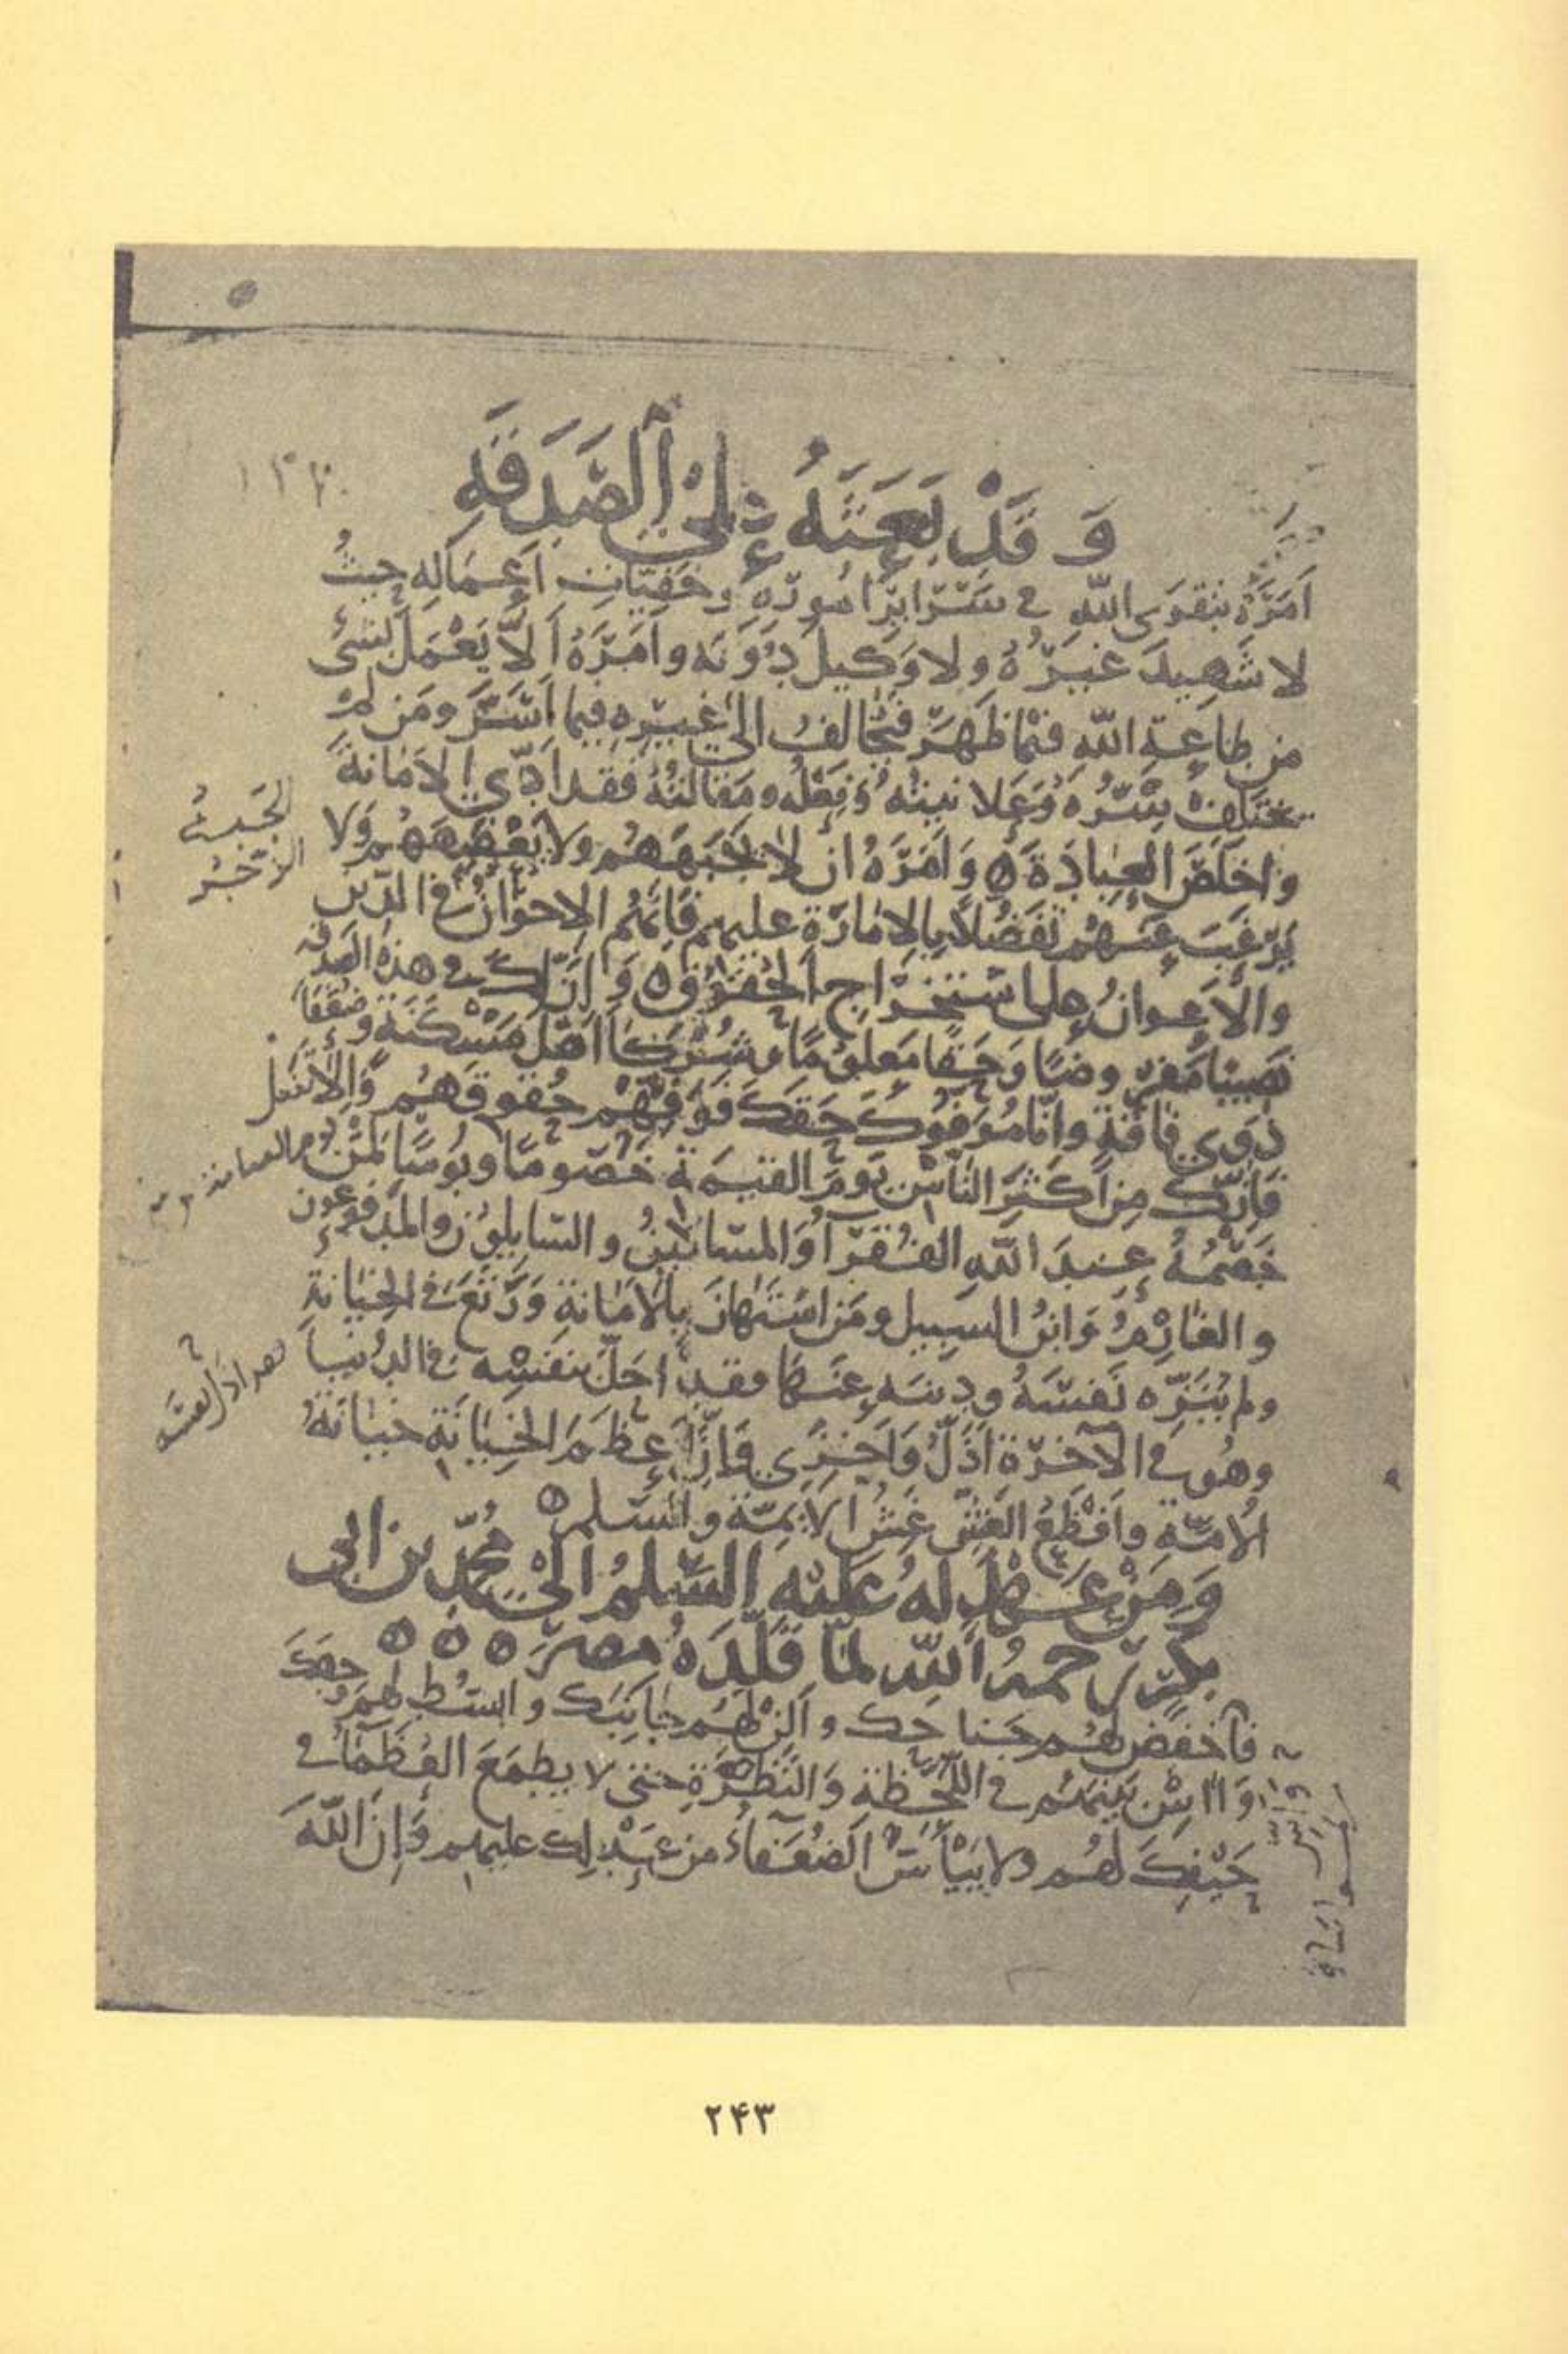 ١٣٢
وَ قَدْ بَعَثَهُ إِلَى الصَّدَقَهِ
اَمَرَهُ بتقوَى اللّهِ في سَرَايِرِ اُمُورِهِ وخَفِيَّاتِ اَعْمَالِه حيثُ
لا شَهِيدَ غيرُهُ ولا وَكيلَ دُونَه وامَرَهُ اَلاَّ يَعْمَلَ بشئ
مِن طاعةِ اللّهِ فيمَا ظَهَرَ فيُخالفُ الى غيرِه فيما اَسَرَّ ومَن لَمْ
يختلِفْ سِرُّهُ وَعَلانيتُه وَفِعْلُه ومَقَالتُهُ فقد اَدَّى الاَمَانةَ
واخلَصَ العِبادَةَ ٥ وَ امَرَهُ ان لا يَجْبَهَهُم ولا يَعْضَهَهُم وَلا
الجَبهُ
الزّجْرُ
يَرْغَبَ عَنهُم تَفَضُّلاً بِالاِمَارَةِ عليهم فَاِنّهُم الاخوَانُ في الدّين
والاَعوانُ على استخراجِ الحُقوُقِ ٥ وَ اِنَّ لكَ في هذه الصدقه
نَصيبًا مَفروضًا وَحَقًا مَعلومًا وشُرَكَاَ اهلَ مَسْكَنَةٍ وضُعَفَاَ
ذَوِي فاقةٍ وانّا مُوَفُّوكَ حَقَّكَ فَوَفِّهِمْ حُقوقَهُم وَاِلاّ تفعل
فَاِنَّكَ مِن اَكثَرِ النَّاسِ يَومَ القيمَةِ خُصُومًا وبُوسًا لمَن
خَصْمُهُ عِندَ اللّهِ الفُقَرَاُ وَالمسَاكينُ والسَّايلوُنَ والمَدفوعُون
والغَارِمُ وَابنُ السَبيل ومَن اسْتَهانَ بِالاَمَانةِ وَرَتَعَ في الخِيَانةِ
ولم يُنَزِّه نَفسَهُ ودينَه عنهَا فقد اَحَلَّ بنفسِه في الدُنيا
وهُو في الآخرَةِ اَذَلُّ وَاَخزَى وَاِنَّ اَعظمَ الخِيَانَةِ خيانَةُ
الاُمَّةِ واَفْظَعُ الغِشِّ غِشُّ الاَيِمَّةِ والسَّلم ٥
وَمِنْ عَهْدٍ لَهُ عَليْه السَّلمُ الى محمّد بن ابى
بكرٍ رحمهُ اللّه لمّا قلَّدَهُ مصرَ ٥ ٥ ٥
فَاخفِض لهُم جَناحَك و اَلِنْ لهُم جَانِبَكَ وابسُط لهُم وَجهَكَ
وَ اسِ بَينَهُم في اللّحْظَةِ وَالنَّظْرَةِ حتى لا يطمَعَ العُظَمَاُ في
حَيْفِكَ لهُم ولا يَيْأَسَ الضُعَفَاءُ من عَدْلِكَ عليهم وَاِنَّ اللّهَ
٢۴٣